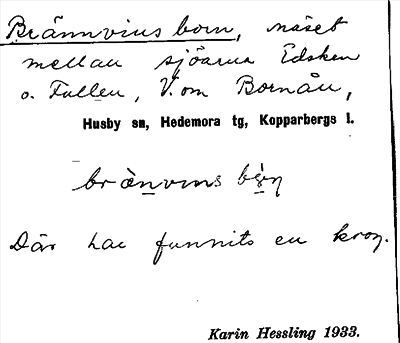 Brännvins born, näset
mellan sjöarna Edsken
o. Fullen, V. om Bornån,
Husby sn, Hedemora tg, Kopparbergs l.
brä̀nvins
Där har funnits en krog.
Karin Hessling 1933.